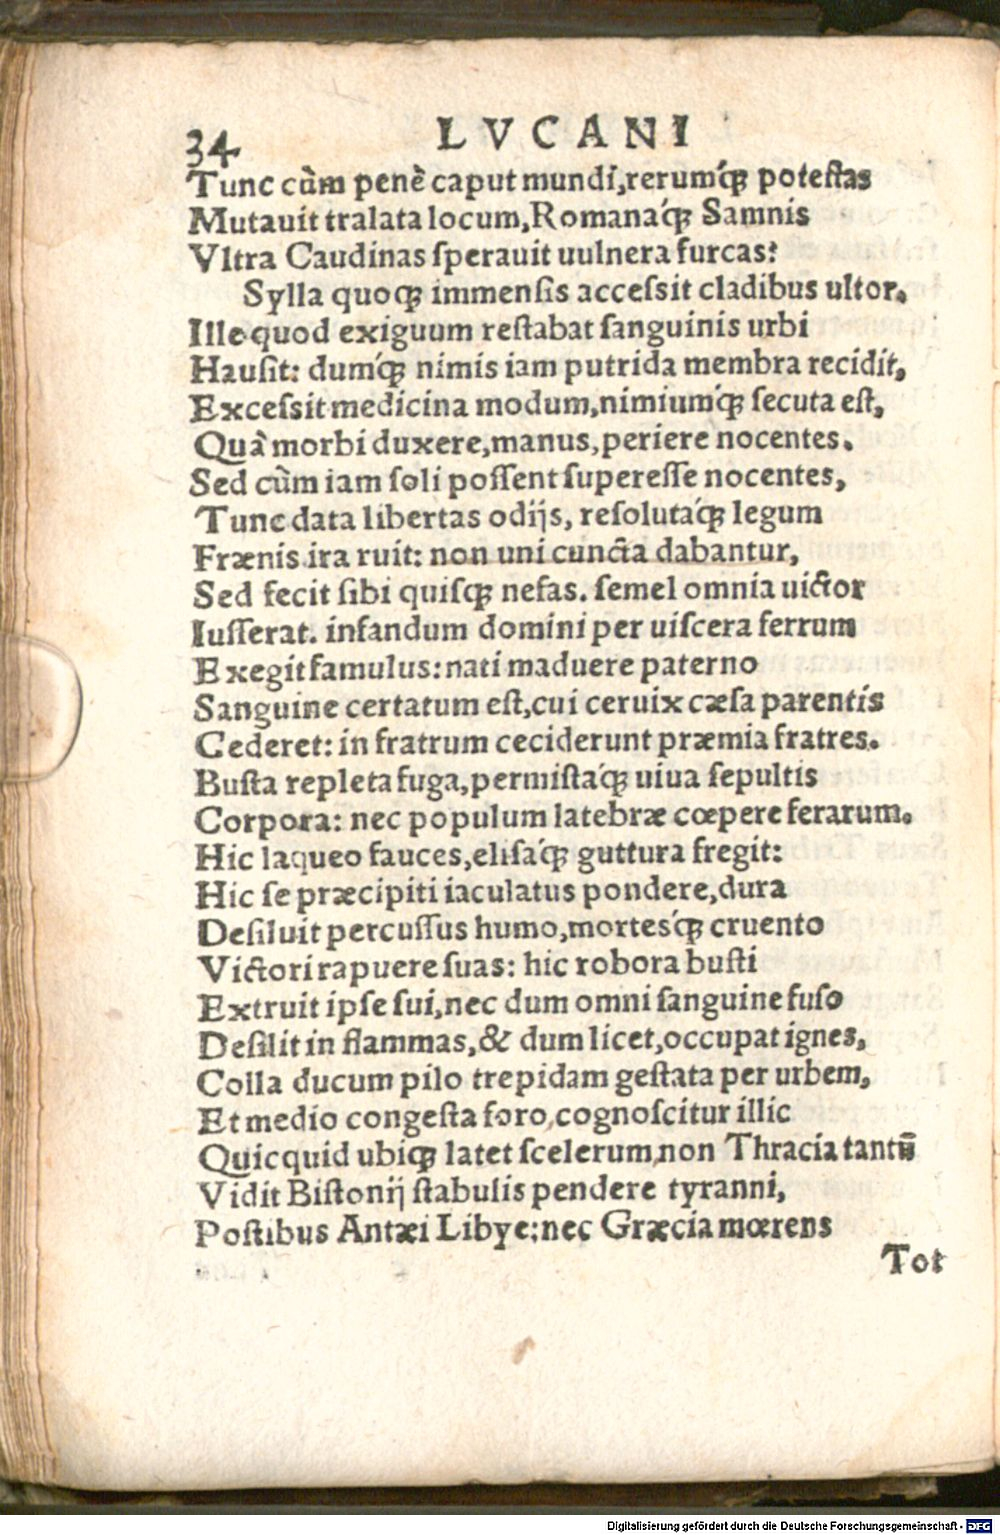 34 LVCANI
Tunc cùm penè caput mundi, rerumq́ꝫ potestas
Mutauit tralata locum, Romanaq́ꝫ Samnis
Vltra Caudinas sperauit uulnera furcas?
Sylla quoqꝫ immensis accessit cladibus ultor.
Ille quod exiguum restabat sanguinis urbi
Hausit: dumq́ꝫ nimis iam putrida membra recidit,
Excessit medicina modum, nimiumq́ꝫ secuta est,
Quà morbi duxere, manus, periere nocentes.
Sed cùm iam soli possent superesse nocentes,
Tunc data libertas odijs, resolutaq́ꝫ legum
Frænis ira ruit: non uni cuncta dabantur,
Sed fecit sibi quisqꝫ nefas. semel omnia uictor
Iusserat. infandum domini per uiscera ferrum
Exegit famulus: nati maduere paterno
Sanguine certatum est, cui ceruix cæsa parentis
Cederet: in fratrum ceciderunt præmia fratres.
Busta repleta fuga, permistaq́ꝫ uiua sepultis
Corpora: nec populum latebræ cœpere ferarum.
Hic laqueo fauces, elisaq́ꝫ guttura fregit:
Hic se præcipiti iaculatus pondere, dura
Desiluit percussus humo, mortesq́ꝫ cruento
Victori rapuere suas: hic robora busti
Extruit ipse sui, nec dum omni sanguine fuso
Desilit in flammas, & dum licet, occupat ignes,
Colla ducum pilo trepidam gestata per urbem,
Et medio congesta foro, cognoscitur illic
Quicquid ubiqꝫ latet scelerum, non Thracia tantū
Vidit Bistonij stabulis pendere tyranni,
Postibus Antæi Libye: nec Græcia mœrens
Tot
Digitalisierung gefördert durch die Deutsche Forschungsgemeinschaft - DFG